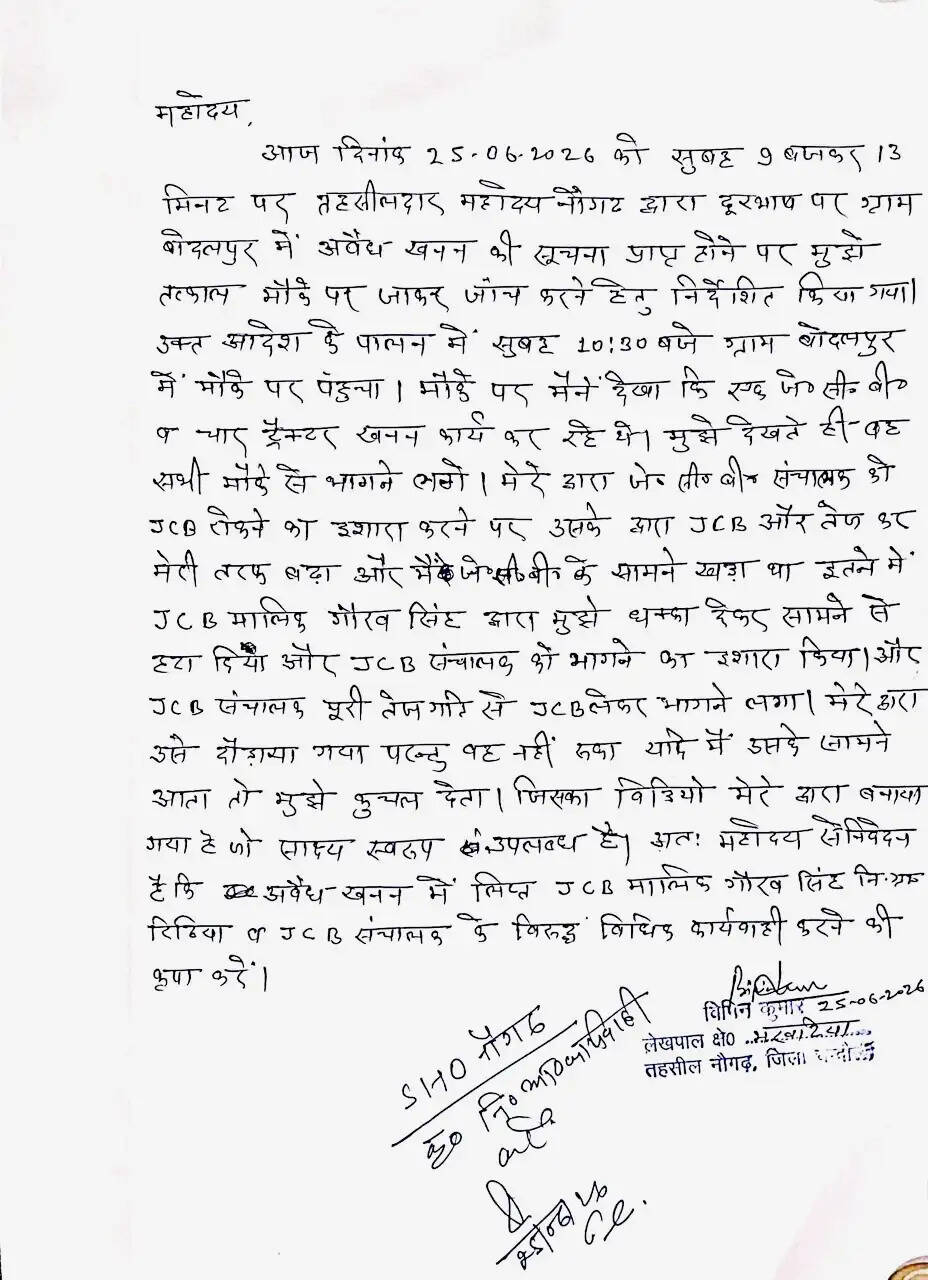 महोदय,
आज दिनांक 25-06-2026 को सुबह 9 बजकर 13
मिनट पर तहसीलदार महोदय नौगढ द्वारा दूरभाष पर ग्राम
बोदलपुर में अवैध खनन की सूचना प्राप्त होने पर मुझे
तत्काल मौके पर जाकर जाँच करने हेतु निर्देशित किया गया।
उक्त आदेश के पालन में सुबह 10:30 बजे ग्राम बोदलपुर
में मौके पर पंहुचा। मौके पर मैनें देखा कि एक जे० सी० बी०
व चार ट्रैक्टर खनन कार्य कर रहे थे। मुझे देखते ही वह
सभी मौके से भागने लगे। मेरे द्वारा जे० सी० बी० संचालक को
JCB रोकने का इशारा करने पर उसके द्वारा JCB और तेज कर
मेरी तरफ बढ़ा और मैं जे०सी०बी० के सामने खड़ा था इतने में
JCB मालिक गौरव सिंह द्वारा मुझे धक्का देकर सामने से
हटा दिया और JCB संचालक को भागने का इशारा किया। और
JCB संचालक पूरी तेज गति से JCB लेकर भागने लगा। मेरे द्वारा
उसे दौड़ाया गया परन्तु वह नहीं रुका यदि मैं उसके सामने
आता तो मुझे कुचल देता। जिसका विडियो मेरे द्वारा बनाया
गया है जो साक्ष्य स्वरुप उपलब्ध है। अतः महोदय से निवेदन
है कि अवैध खनन में लिप्त JCB मालिक गौरव सिंह नि०ग्राम
रिठिया व JCB संचालक के विरुद्ध विधिक कार्यवाही करने की
कृपा करें।
विपिन कुमार 25-06-2026
लेखपाल क्षे०
तहसील नौगढ़, जिला
SHO नौगढ
कृ० नि० आ० कार्यवाही
करें